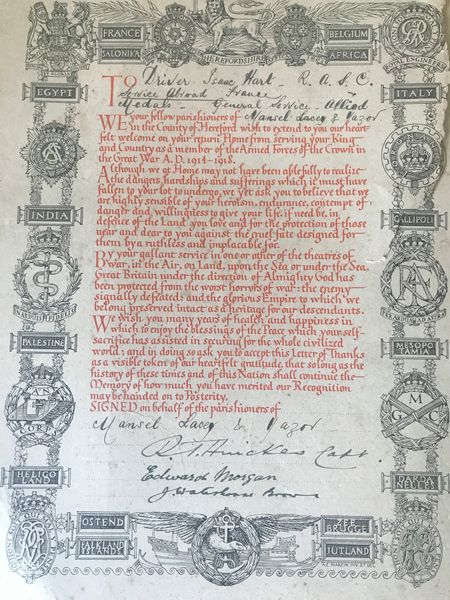 FRANCE
BELGIUM
SALONIKA
HEREFORDSHIRE
AFRICA
ROYAL ENGINEERS
EGYPT
ITALY
INDIA
GALLIPOLI
PALESTINE
MESOPO
TAMIA
HELIGO
LAND
DARDA
NELLES
To Driver Isaac Hart R.A.S.C.
Service Abroad France
Medals - General Service - Allied
WE your fellow parishioners of Mansel Lacey & Yazor
in the County of Hereford wish to extend to you our heart
felt welcome on your return Home from serving your King
and Country as a member of the Armed Forces of the Crown in
the Great War A.D. 1914-1918.
Although we at Home may not have been able fully to realize
the dangers, hardships and sufferings which it must have
fallen to your lot to undergo, we yet ask you to believe that we
are highly sensible of your heroism, endurance, contempt of
danger and willingness to give your life, if need be, in
defence of the Land you love and for the protection of those
near and dear to you against the cruel fate designed for
them by a ruthless and implacable foe.
By your gallant service in one or other of the theatres of
War, in the Air, on Land, upon the Sea or under the Sea,
Great Britain under the direction of Almighty God has
been protected from the worst horrors of war: the enemy
signally defeated: and the glorious Empire to which we
belong preserved intact as a heritage for our descendants.
We wish you many years of health and happiness in
which to enjoy the blessings of the Peace which your self-
sacrifice has assisted in securing for the whole civilized
world; and in doing so ask you to accept this Letter of Thanks
as a visible token of our heartfelt gratitude, that so long as the
history of these times and of this Nation shall continue the
Memory of how much you have merited our Recognition
may be handed on to Posterity.
SIGNED on behalf of the parishioners of
Mansel Lacey & Yazor
Capt.
Edward Morgan
OSTEND
ZEE
BRUGGE
FALKLAND
ISLANDS
JUTLAND